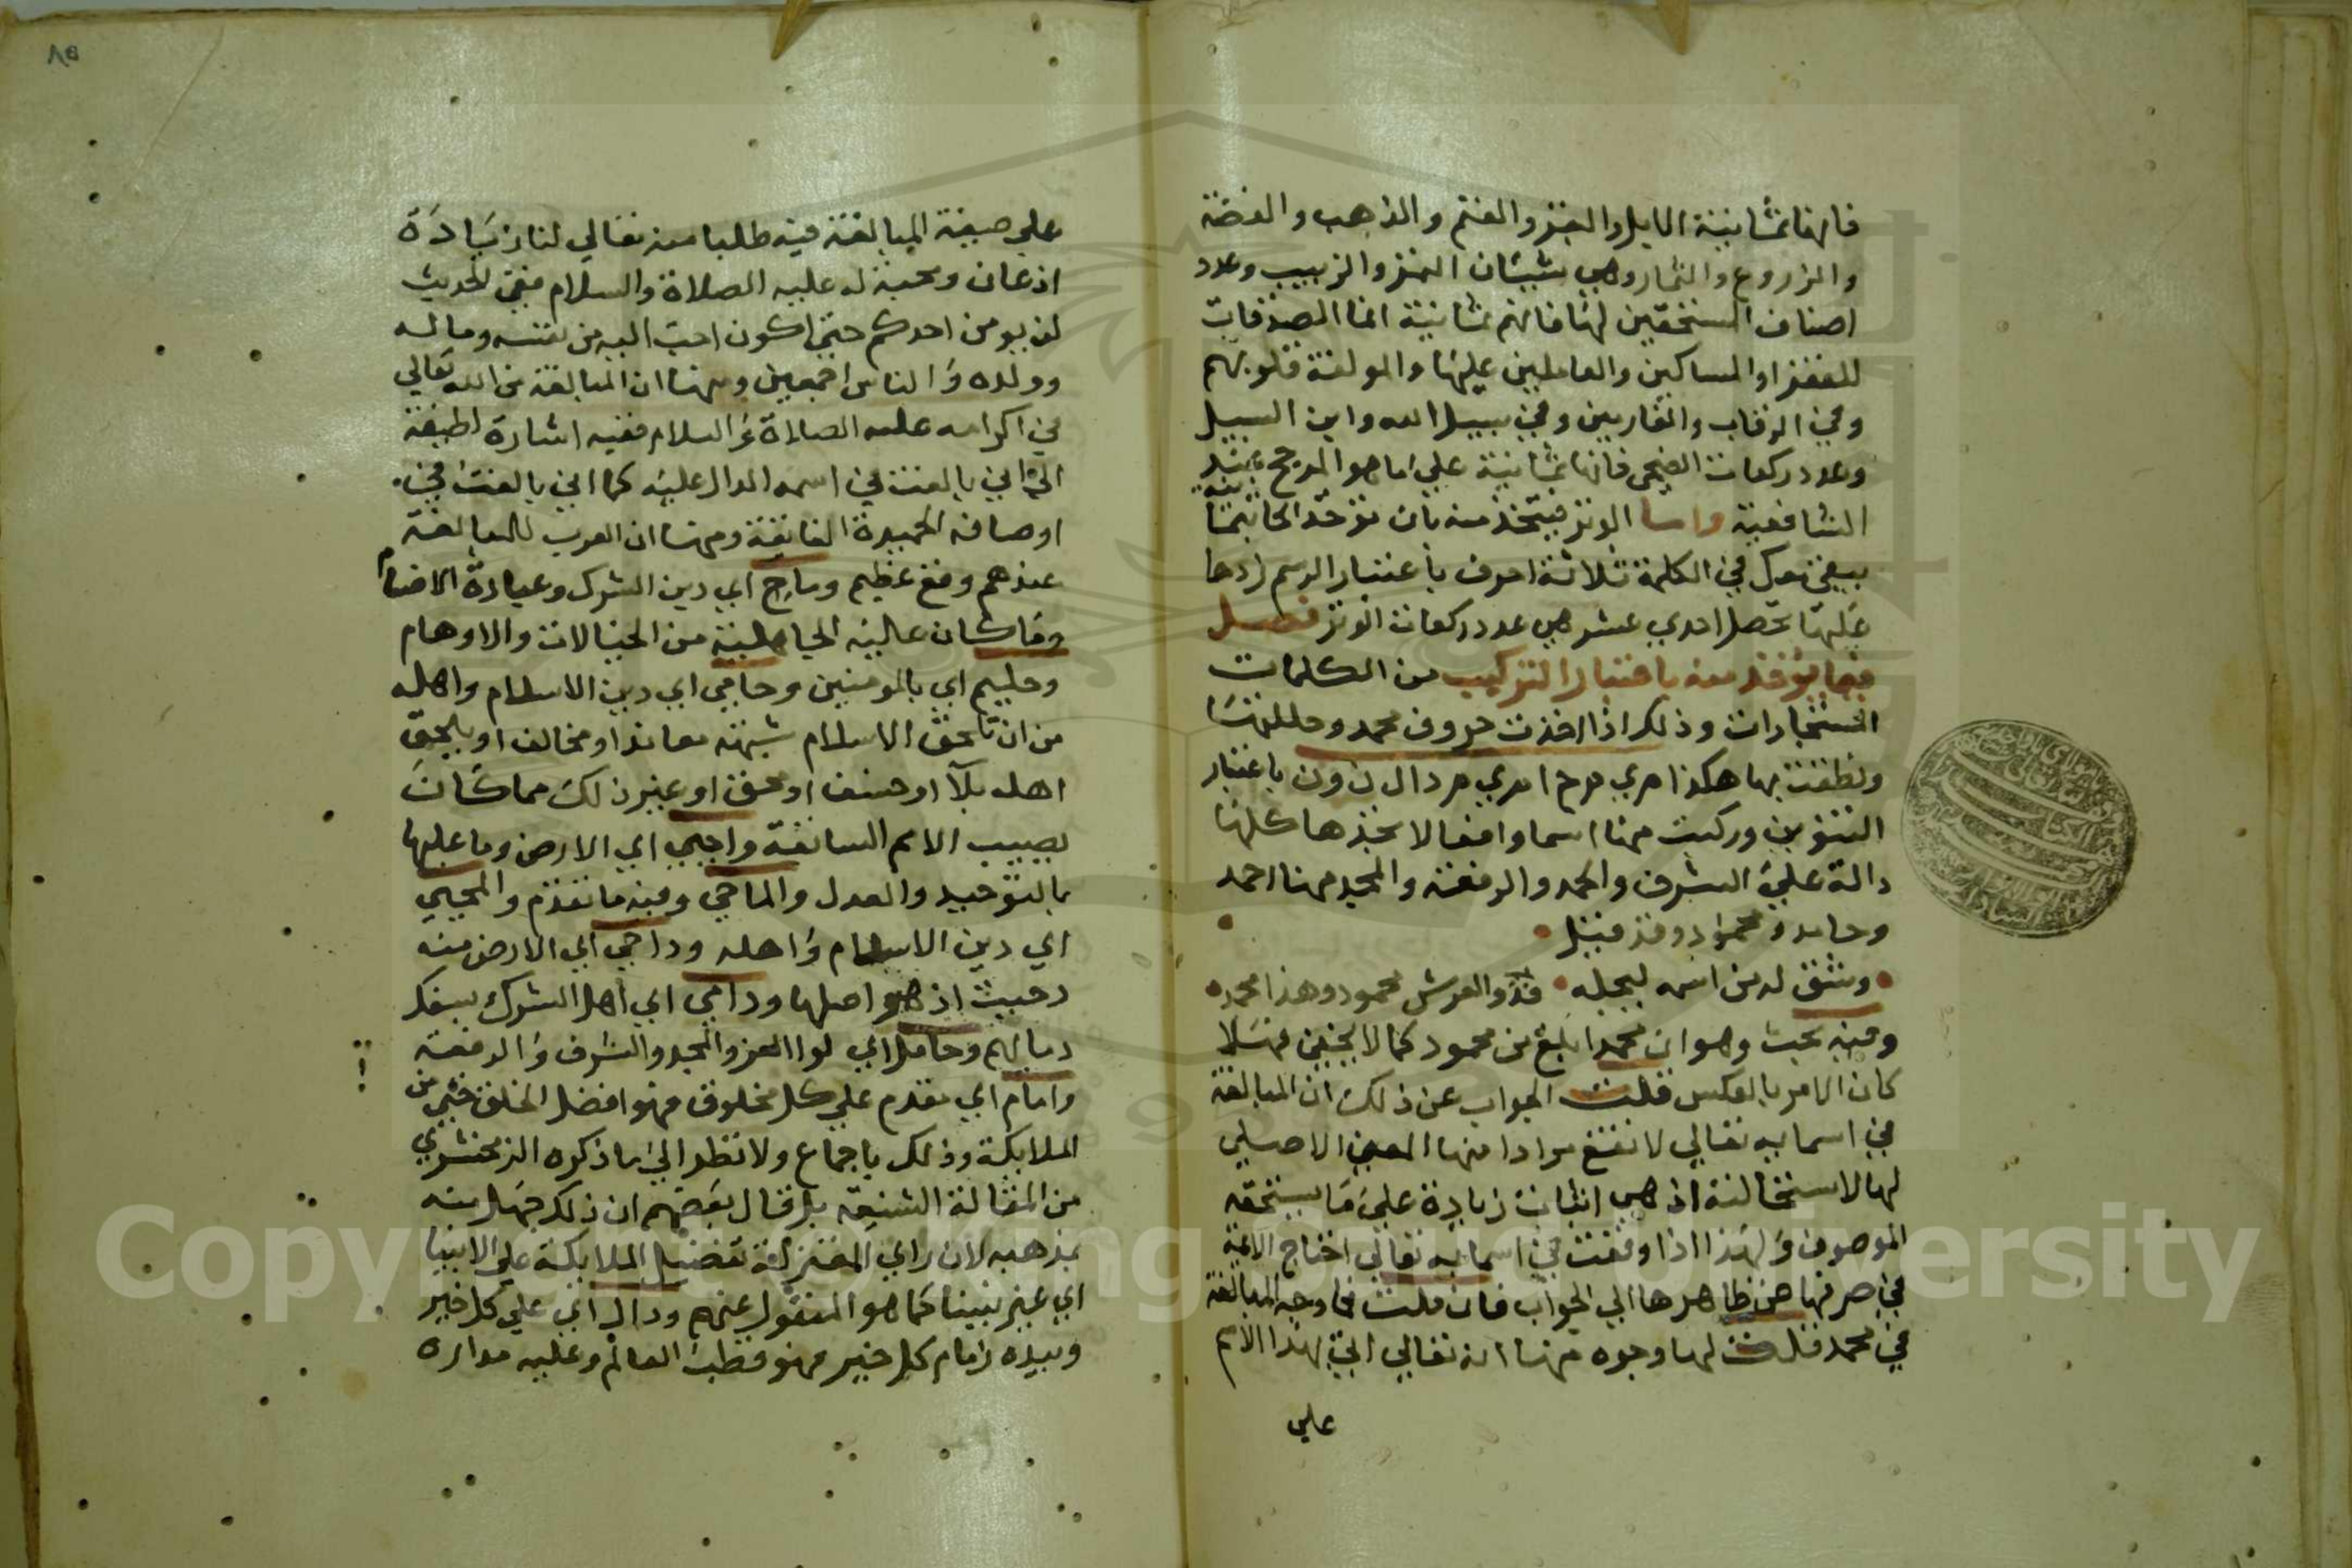 فانها ثمانية الابل والبقر والغنم والذهب والفضة
والزروع والثمار وهي شيئان التمر والزبيب وعدد
اصناف المستحقين لها فانهم ثمانية انما الصدقات
للفقرا والمساكين والعاملين عليها والمولفة قلوبهم
وفي الرقاب والغارمين وفي سبيل الله وابن السبيل
وعدد ركعات الضحى فانها ثمانية علي ما هو المرجح عند
الشافعية واما الوتر فيتخذ منه بان توخذ الحا بثمانية
يبقى معك في الكلمة ثلاثة احرف باعتبار الرسم زدها
عليها تحصل احدي عشر هي عدد ركعات الوتر فصل
فيما يوخذ منه باعتبار التركيب من الكلمات
المستجادات وذلك اذا اخذت حروف محمد وحللتها
ونطقت بها هكذا م ي م ح ا م ي م د ا ل ن و ن باعتبار
التنوين وركبت منها اسما وافعالا تجدها كلها
دالة علي الشرف والحمد والرفعة والمجد منها احمد
وحامد ومحمود وقد قيل
وشق له من اسمه ليجله فذو العرش محمود وهذا محمد
وفيه بحث وهو ان محمد ابلغ من محمود كما لا يخفى فهلا
كان الامر بالعكس قلت الجواب عن ذلك ان المبالغة
في اسمايه تعالي لا تقع مرادا منها المعني الاصلي
لها لاستحالته اذ هي اثبات زيادة علي ما يستحقه
الموصوف ولهذا اذا وقعت في اسمايه تعالي احتاج الايمة
في صرفها عن ظاهرها الي الجواب فان قلت فما وجه المبالغة
في محمد قلت لها وجوه منها انه تعالي اتى بهذا الاسم
علي
٨٥
علي صيغة المبالغة فيه طلبا منه تعالي لنا زيادة
اذعان ومحبة له عليه الصلاة والسلام ففي الحديث
لن يومن احدكم حتى اكون احب اليه من نفسه وماله
وولده والناس اجمعين ومنها ان المبالغة من الله تعالي
في اكرامه عليه الصلاة والسلام ففيه اشارة لطيفة
الي اني بالغت في اسمه الدال عليه كما اني بالغت في
اوصافه الحميدة الفايقة ومنها ان العرب للمبالغة
عندهم وقع عظيم وماح اي دين الشرك وعبادة الاصنام
وما كان عاليه الجاهلية من الخيالات والاوهام
وحليم اي بالمومنين وحامي اي دين الاسلام واهله
من ان تلحق الاسلام شبهة معاند او مخالف او يلحق
اهله بلآ او خسف او محق او غير ذلك مما كان
يصيب الامم السابقة واحيي اي الارض وما عليها
بالتوحيد والعدل والماحي وفيه ما تقدم والمحيي
اي دين الاسلام واهله وداحي اي الارض منه
دحيت اذ هو اصلها ودامي اي اهل الشرك بسفك
دمايهم وحامل اي لوا العز والمجد والشرف والرفعة
وامام اي مقدم علي كل مخلوق فهو افضل الخلق حتى من
الملايكة وذلك باجماع ولا نظر الي ما ذكره الزمخشري
من المقالة الشنيعة بل قال بعضهم ان ذلك جهل منه
بمذهبه لان راي المعتزلة تفضيل الملايكة علي الانبيا
اي غير نبينا كما هو المنقول عنهم ودال اي علي كل خير
وبيده زمام كل خير فهو قطب العالم وعليه مداره
Copyright © King Saud University